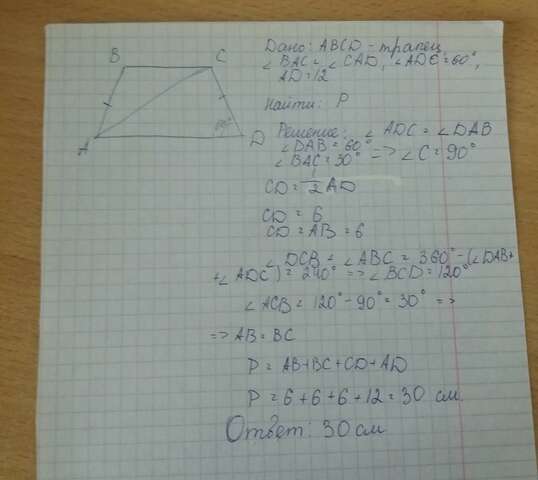 B C
A D
60°
Дано: ABCD - трапец,
∠BAC = ∠CAD, ∠ADC = 60°,
AD = 12
Найти: P
Решение: ∠ADC = ∠DAB
∠DAB = 60°
∠BAC = 30° => ∠C = 90°
CD = 1/2 AD
CD = 6
CD = AB = 6
∠DCB + ∠ABC = 360° - (∠DAB +
+ ∠ADC) = 240° => ∠BCD = 120°
∠ACB = 120° - 90° = 30° =>
=> AB = BC
P = AB + BC + CD + AD
P = 6 + 6 + 6 + 12 = 30 см
Ответ: 30 см